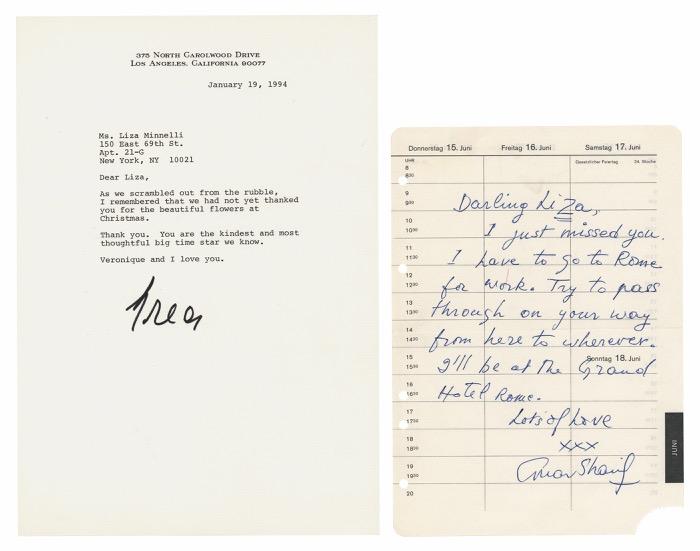 375 North Carolwood Drive
Los Angeles, California 90077
January 19, 1994
Ms. Liza Minnelli
150 East 69th St.
Apt. 21-G
New York, NY 10021
Dear Liza,
As we scrambled out from the rubble,
I remembered that we had not yet thanked
you for the beautiful flowers at
Christmas.
Thank you. You are the kindest and most
thoughtful big time star we know.
Veronique and I love you.
Donnerstag 15. Juni
Freitag 16. Juni
Samstag 17. Juni
UHR
Gesetzlicher Feiertag
24. Woche
8
830
9
930
10
1030
11
1130
12
1230
13
1330
14
1430
15
1530
16
1630
17
1730
18
1830
19
1930
20
Sonntag 18. Juni
JUNI
Darling Liza,
I just missed you.
I have to go to Rome
for work. Try to pass
through on your way
from here to wherever.
I'll be at the Grand
Hotel Rome.
Lots of Love
xxx
Omar Sharif